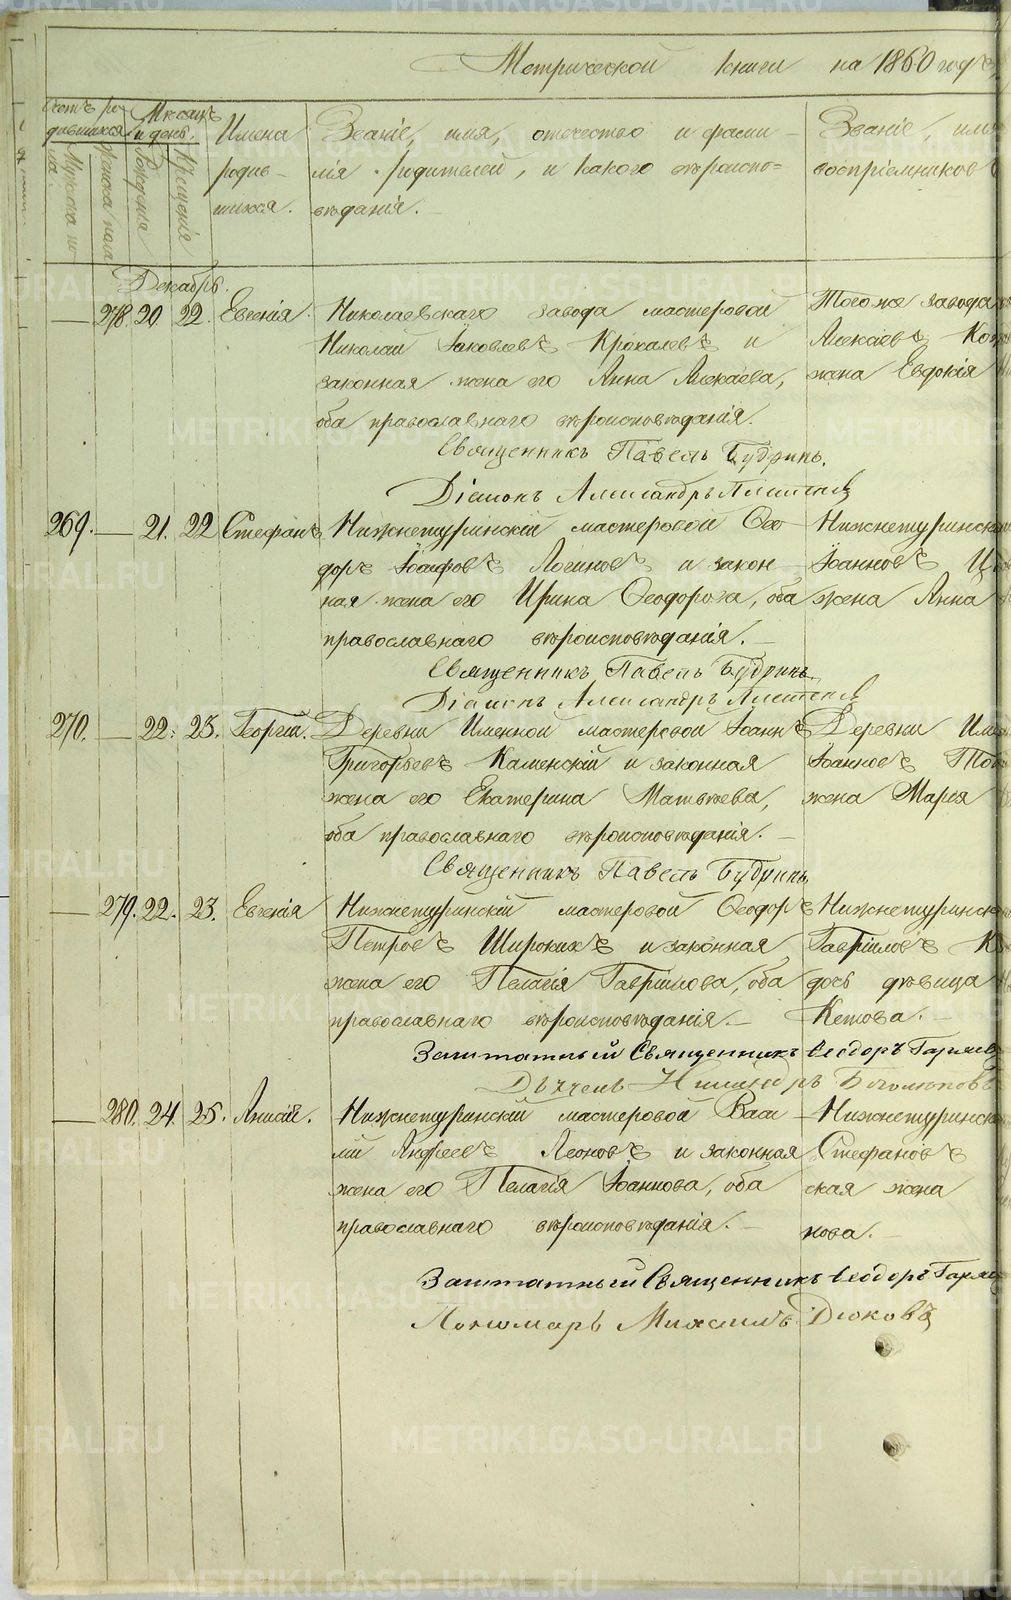 Метрической книги на 1860 годъ
Счетъ ро-
дившихся.
Мѣсяцъ
и день.
Мужска по-
ла.
Женска пола
Рожденія
Крещенія
Имена
родив-
шихся.
Званіе, имя, отечество и фами-
лія родителей, и какого вѣроиспо-
вѣданія.
Званіе, имя
воспріемниковъ
Декабрь.
— 278. 20. 22. Евгенія.
Николаевскаго завода мастеровой
Николай Іаковлевъ Крохалевъ и
законная жена его Анна Алексѣева,
оба православнаго вѣроисповѣданія.
Священникъ Павелъ Будринъ.
Діаконъ Александръ
Того же завода
Алексѣевъ
жена Евдокія
269. — 21. 22 Стефанъ.
Нижнетуринскій мастеровой Ѳео-
доръ Іоасафовъ Логиновъ и закон-
ная жена его Ирина Ѳеодорова, оба
православнаго вѣроисповѣданія. —
Священникъ Павелъ Будринъ.
Діаконъ Александръ
Нижнетуринск
Іоанновъ
жена Анна
270. — 22. 23. Георгій.
Деревни Именной мастеровой Іоаннъ
Григорьевъ Каменскій и законная
жена его Екатерина Матвѣева,
оба православнаго вѣроисповѣданія. —
Священникъ Павелъ Будринъ.
Деревни Имен
Іоанновъ
жена Марія
— 279. 22. 23. Евгенія
Нижнетуринскій мастеровой Ѳеодоръ
Петровъ Широкихъ и законная
жена его Пелагія Гавріилова, оба
православнаго вѣроисповѣданія. —
Заштатный Священникъ Ѳеодоръ Гаряев
Дьячекъ Боголюбовъ
Нижнетуринск
Гавріиловъ К
дочь дѣвица
Кетова. —
— 280. 24. 25. Анисія.
Нижнетуринскій мастеровой Васи-
лій Андреевъ Леоновъ и законная
жена его Пелагія Іоаннова, оба
православнаго вѣроисповѣданія. —
Заштатный Священникъ Ѳеодоръ Гаряев
Пономарь Михаилъ Дюковъ
Нижнетуринск
Стефановъ
ская жена
нова. —
METRIKI.GASO-URAL.RU